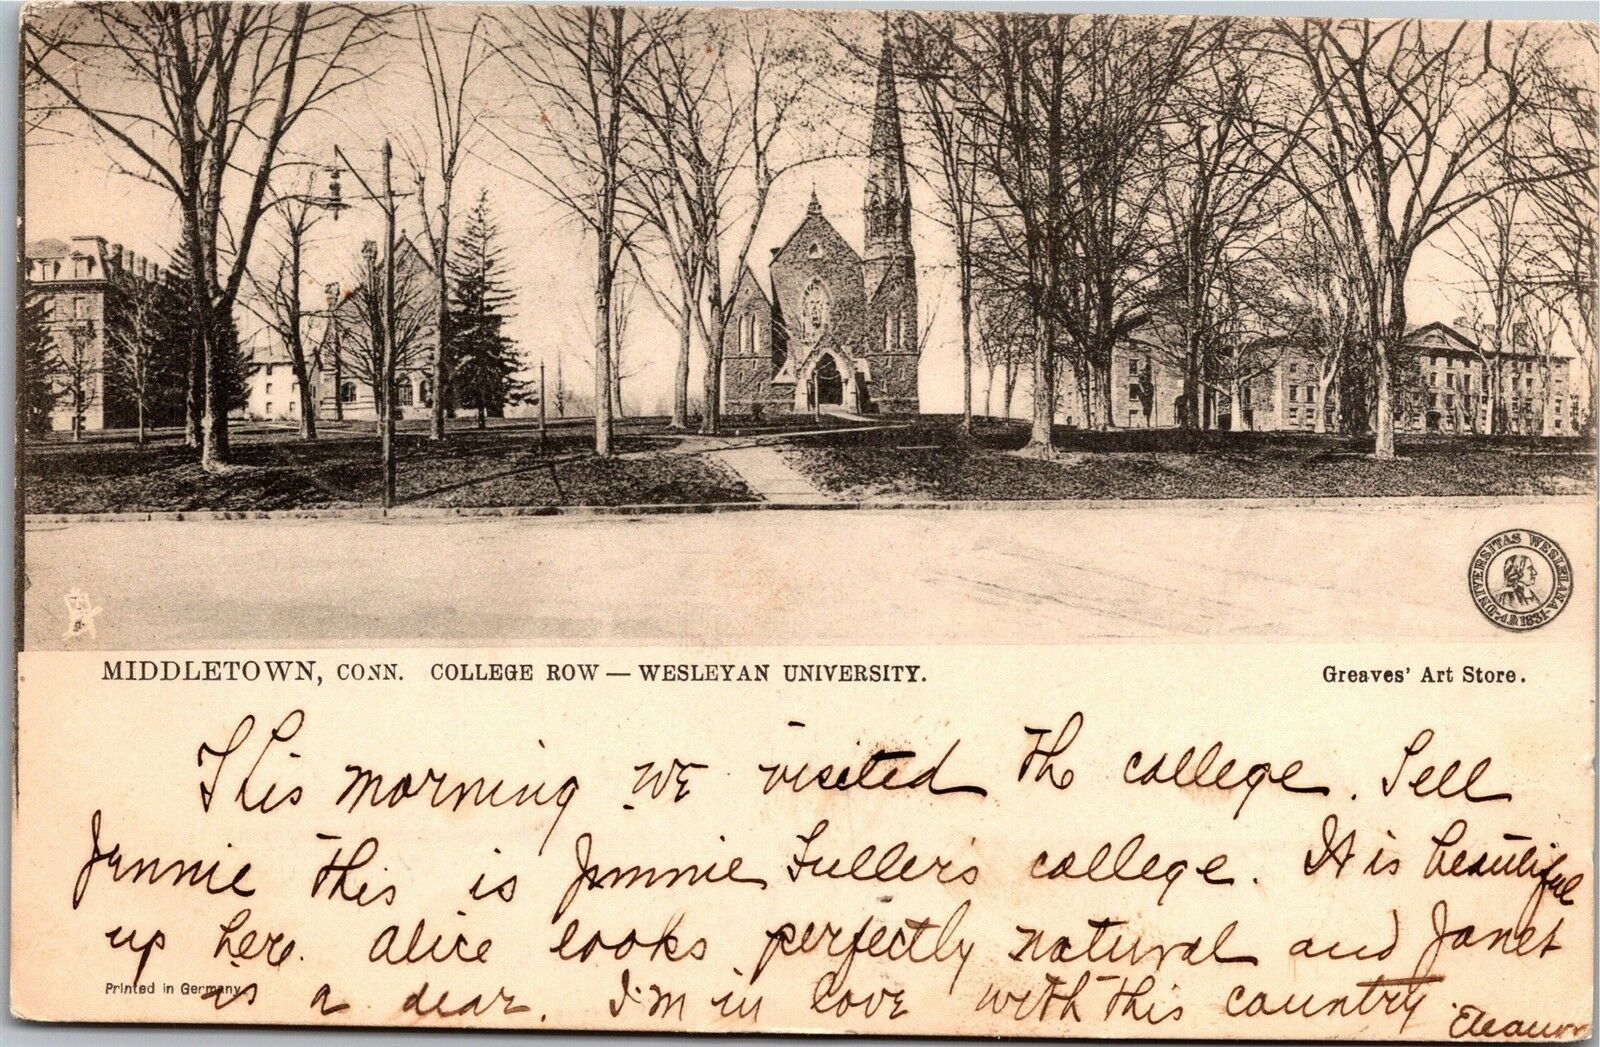 UNIVERSITAS WESLEIANA 1831
MIDDLETOWN, CONN. COLLEGE ROW — WESLEYAN UNIVERSITY.
Greaves' Art Store.
This morning we visited the college. Tell
Jennie this is Jimmie Fuller's college. It is beautiful
up here. Alice looks perfectly natural and Janet
is a dear. I'm in love with this country.
Eleanor
Printed in Germany